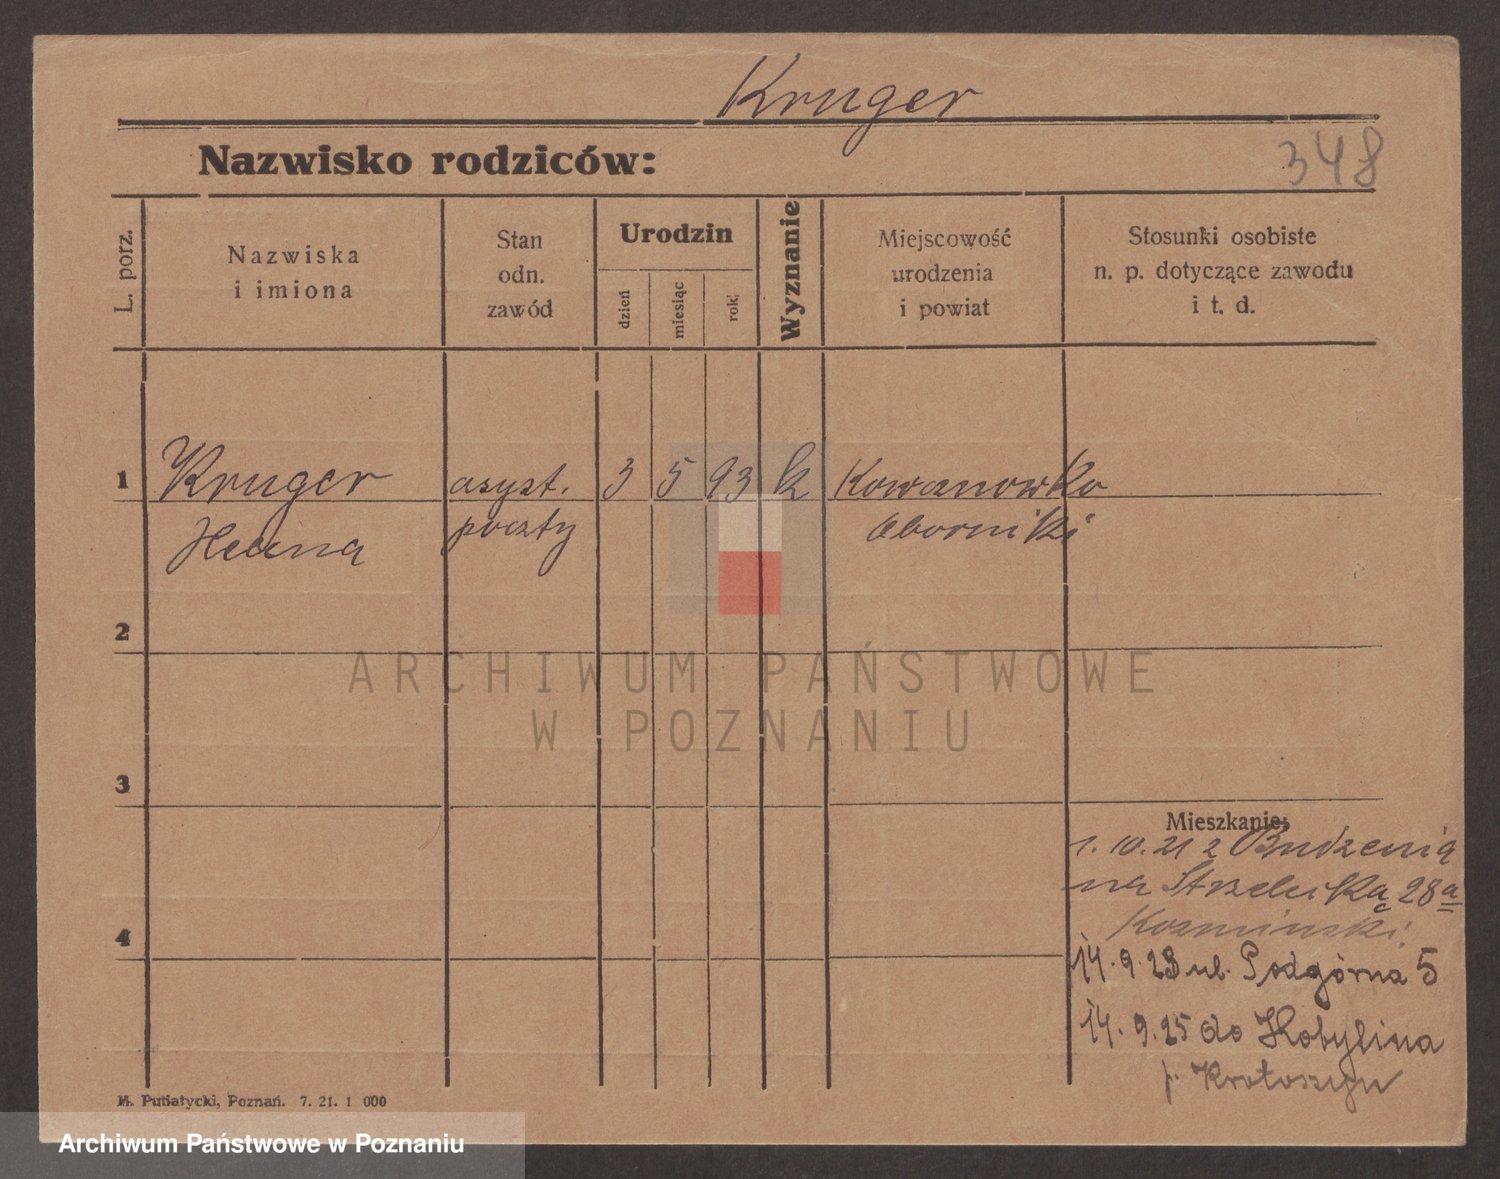 Kruger
Nazwisko rodziców:
348
L. porz.
Nazwiska
i imiona
Stan
odn.
zawód
Urodzin
dzień
miesiąc
rok
Wyznanie
Miejscowość
urodzenia
i powiat
Stosunki osobiste
n. p. dotyczące zawodu
i t. d.
1 Kruger asyst. 3 5 93 k Kowanowko
Helena poczty Oborniki
2
3
4
Mieszkanie:
1. 10. 21 z Budzenia
na Strzelecką 28a
Kozminski.
14. 9 23 ul. Podgórna 5
14. 9. 25 do Kobylina
p. Krotoszyn
M. Putiatycki, Poznań. 7. 21. 1 000
ARCHIWUM PAŃSTWOWE
W POZNANIU
Archiwum Państwowe w Poznaniu